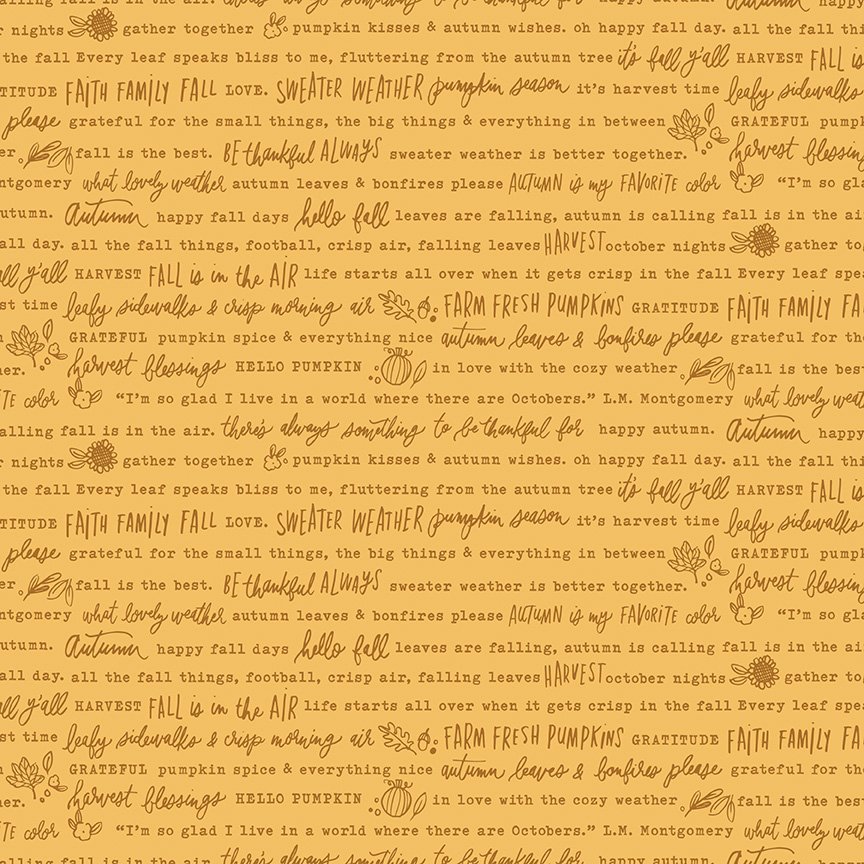 falling fall is in the air. there's always something to be thankful for happy autumn. Autumn happy
r nights gather together pumpkin kisses & autumn wishes. oh happy fall day. all the fall thi
the fall Every leaf speaks bliss to me, fluttering from the autumn tree it's fall y'all HARVEST FALL is
TITUDE FAITH FAMILY FALL LOVE. SWEATER WEATHER pumpkin season it's harvest time leafy sidewalks
please grateful for the small things, the big things & everything in between GRATEFUL pumpk
er. fall is the best. BE thankful ALWAYS sweater weather is better together. harvest blessing
ntgomery what lovely weather autumn leaves & bonfires please AUTUMN is my FAVORITE color "I'm so gla
utumn. Autumn happy fall days hello fall leaves are falling, autumn is calling fall is in the air
all day. all the fall things, football, crisp air, falling leaves HARVEST october nights gather to
all y'all HARVEST FALL is in the AIR life starts all over when it gets crisp in the fall Every leaf spe
st time leafy sidewalks & crisp morning air FARM FRESH PUMPKINS GRATITUDE FAITH FAMILY FA
n GRATEFUL pumpkin spice & everything nice autumn leaves & bonfires please grateful for th
her. harvest blessings HELLO PUMPKIN in love with the cozy weather fall is the bes
TE color "I'm so glad I live in a world where there are Octobers." L.M. Montgomery what lovely weat
alling fall is in the air. there's always something to be thankful for happy autumn. Autumn happy
r nights gather together pumpkin kisses & autumn wishes. oh happy fall day. all the fall thi
the fall Every leaf speaks bliss to me, fluttering from the autumn tree it's fall y'all HARVEST FALL is
TITUDE FAITH FAMILY FALL LOVE. SWEATER WEATHER pumpkin season it's harvest time leafy sidewalks
please grateful for the small things, the big things & everything in between GRATEFUL pumpk
er. fall is the best. BE thankful ALWAYS sweater weather is better together. harvest blessing
ntgomery what lovely weather autumn leaves & bonfires please AUTUMN is my FAVORITE color "I'm so gla
utumn. Autumn happy fall days hello fall leaves are falling, autumn is calling fall is in the air
all day. all the fall things, football, crisp air, falling leaves HARVEST october nights gather to
all y'all HARVEST FALL is in the AIR life starts all over when it gets crisp in the fall Every leaf spe
st time leafy sidewalks & crisp morning air FARM FRESH PUMPKINS GRATITUDE FAITH FAMILY FA
n GRATEFUL pumpkin spice & everything nice autumn leaves & bonfires please grateful for th
her. harvest blessings HELLO PUMPKIN in love with the cozy weather fall is the bes
TE color "I'm so glad I live in a world where there are Octobers." L.M. Montgomery what lovely weat
alling fall is in the air. there's always something to be thankful for happy autumn. Autumn happy